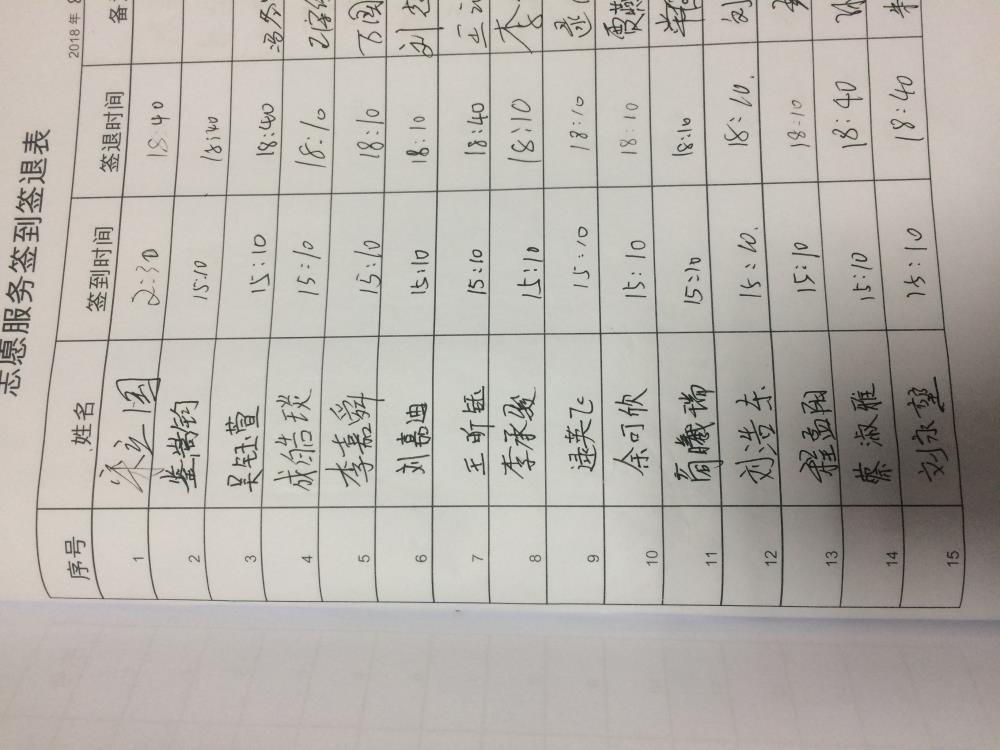 志愿服务签到签退表
2018年8
序号 姓名 签到时间 签退时间 备
1 国 2:30 18:40
2 15:10 18:40
3 吴钰萱 15:10 18:40 冯
4 成皓琰 15:10 18:10
5 李嘉舜 15:10 18:10 万国
6 刘嘉迪 15:10 18:10 刘志
7 王昕钰 15:10 18:40 王
8 李承骏 15:10 18:10 李
9 逯英飞 15:10 18:10 逯
10 余可欣 15:10 18:10 贾燕
11 商曦瑞 15:10 18:10
12 刘浩东 15:10. 18:10. 刘
13 程孟阳 15:10 18:10
14 蔡淑雅 15:10 18:40
15 刘永堃 15:10 18:40